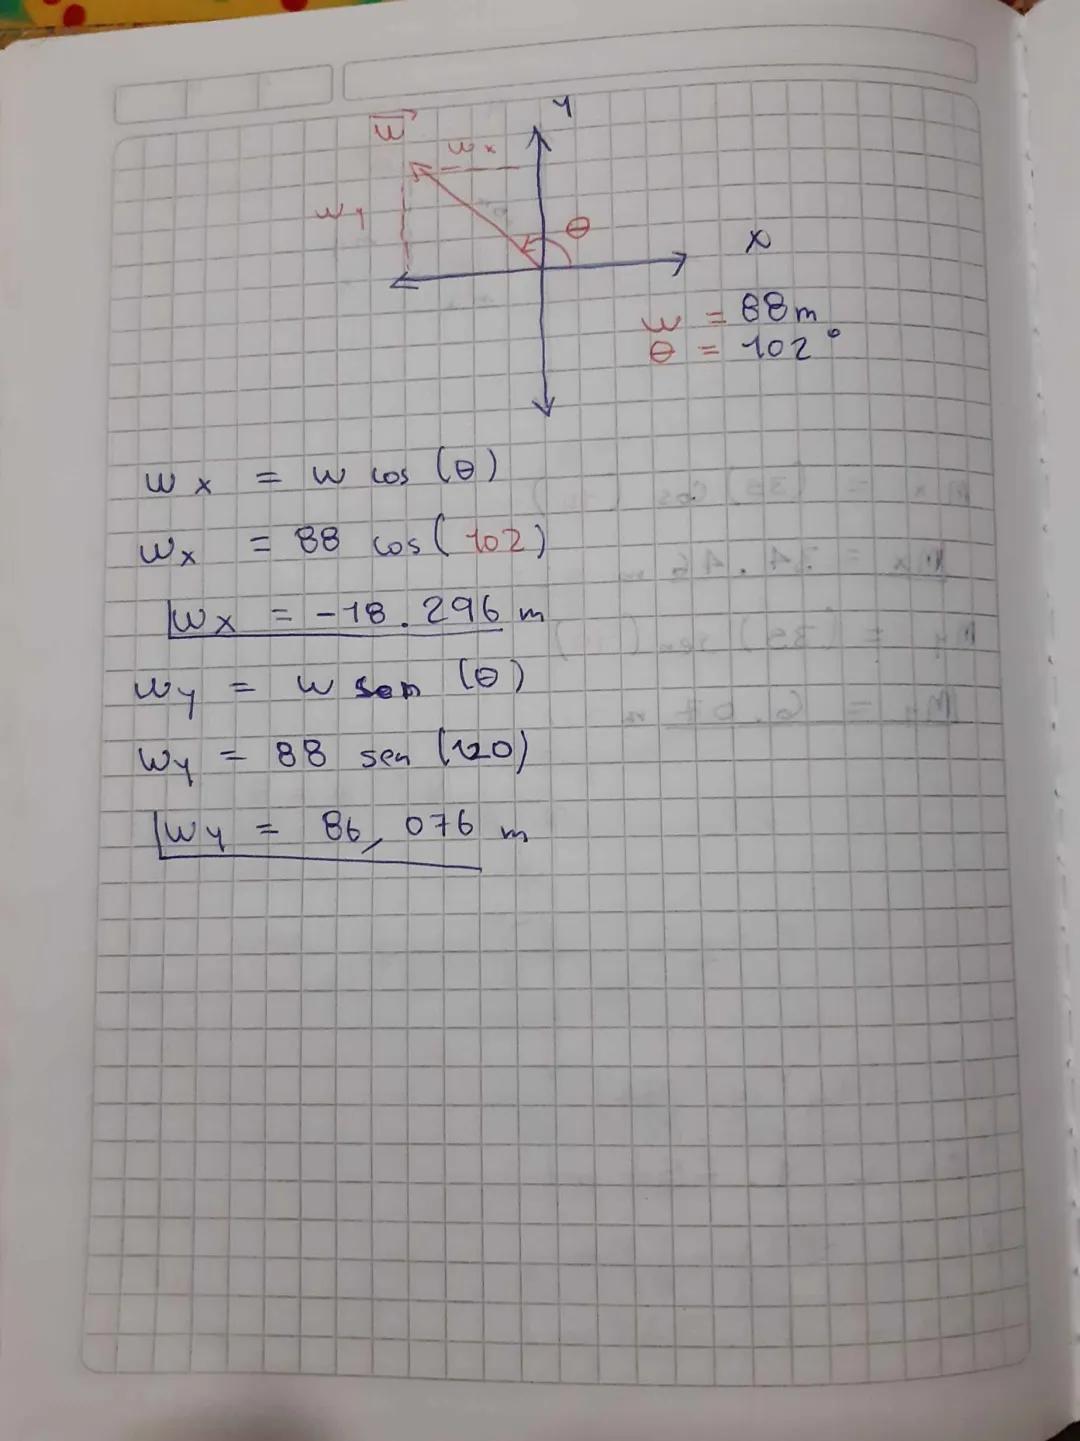 y
w⃗
wx
wy
θ
x
w = 88m
θ = 102°
wx = w cos (θ)
wx = 88 cos(102)
wx = -18.296 m
wy = w sen (θ)
wy = 88 sen (120)
wy = 86,076 m